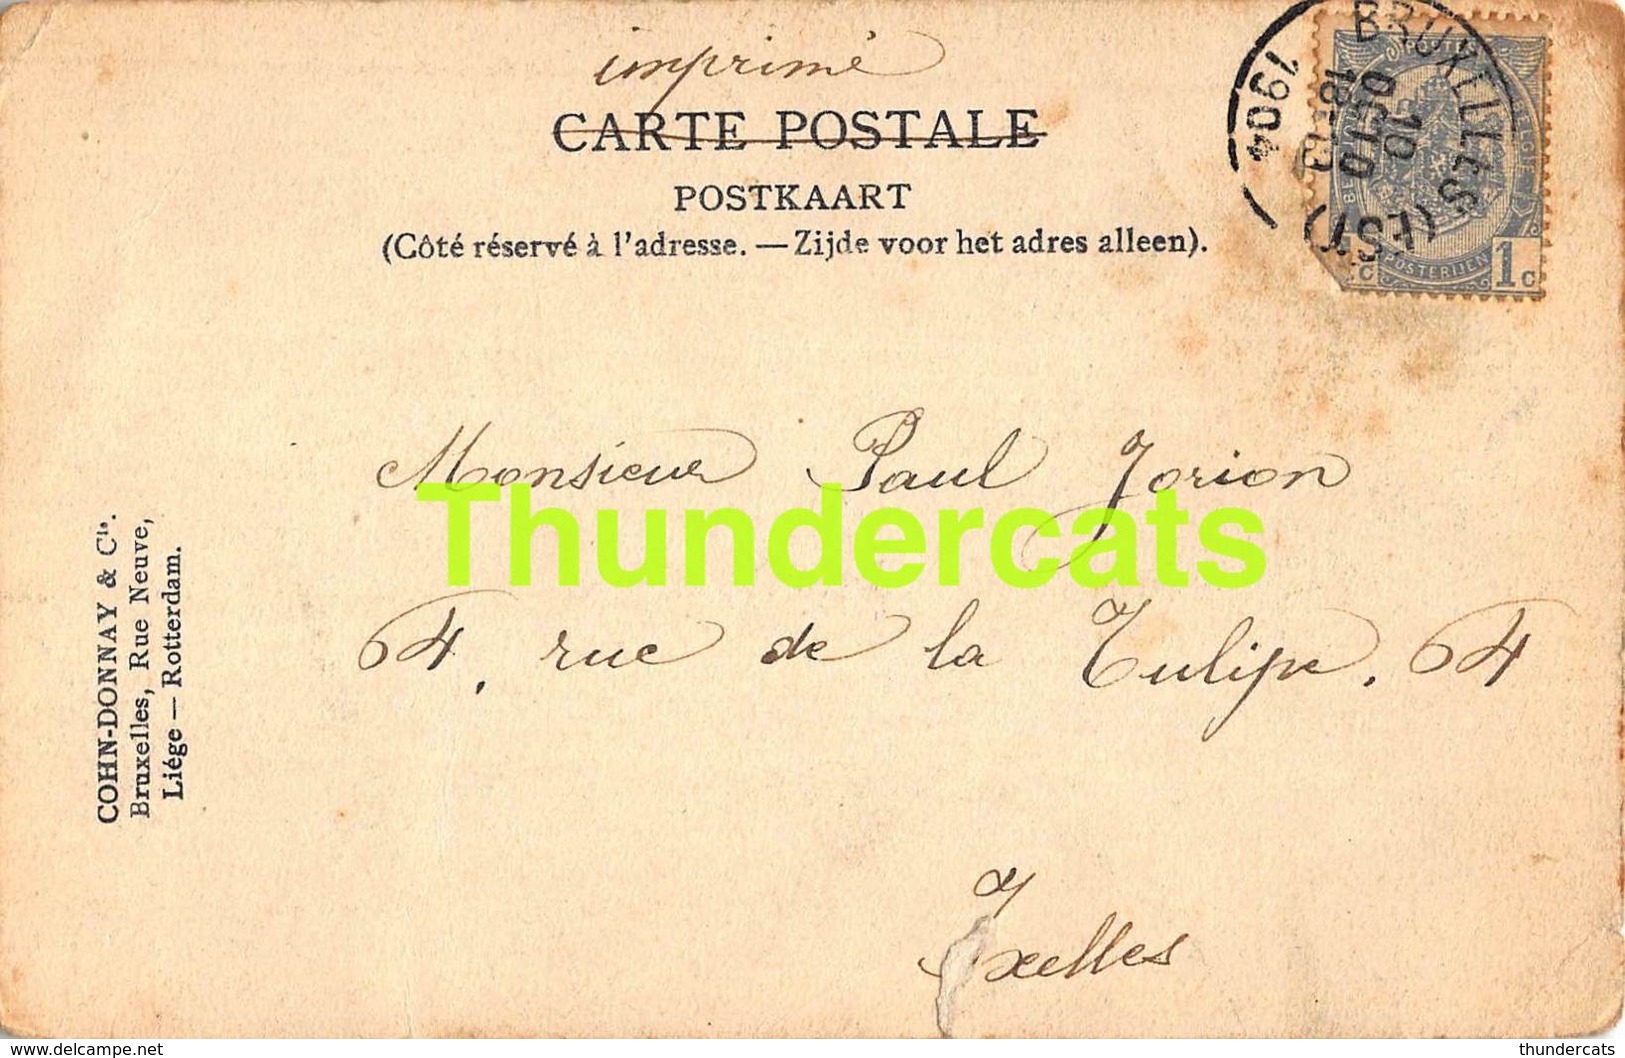 imprimé
CARTE POSTALE
POSTKAART
(Côté réservé à l'adresse. — Zijde voor het adres alleen).
BRUXELLES (EST)
1904
10
BELGI
POSTERIJEN
1c
Monsieur Paul Jorion
Thundercats
4, rue de la Tulipe. 4
Ixelles
COHN-DONNAY & Cie.
Bruxelles, Rue Neuve,
Liége — Rotterdam.
delcampe.net
thundercats